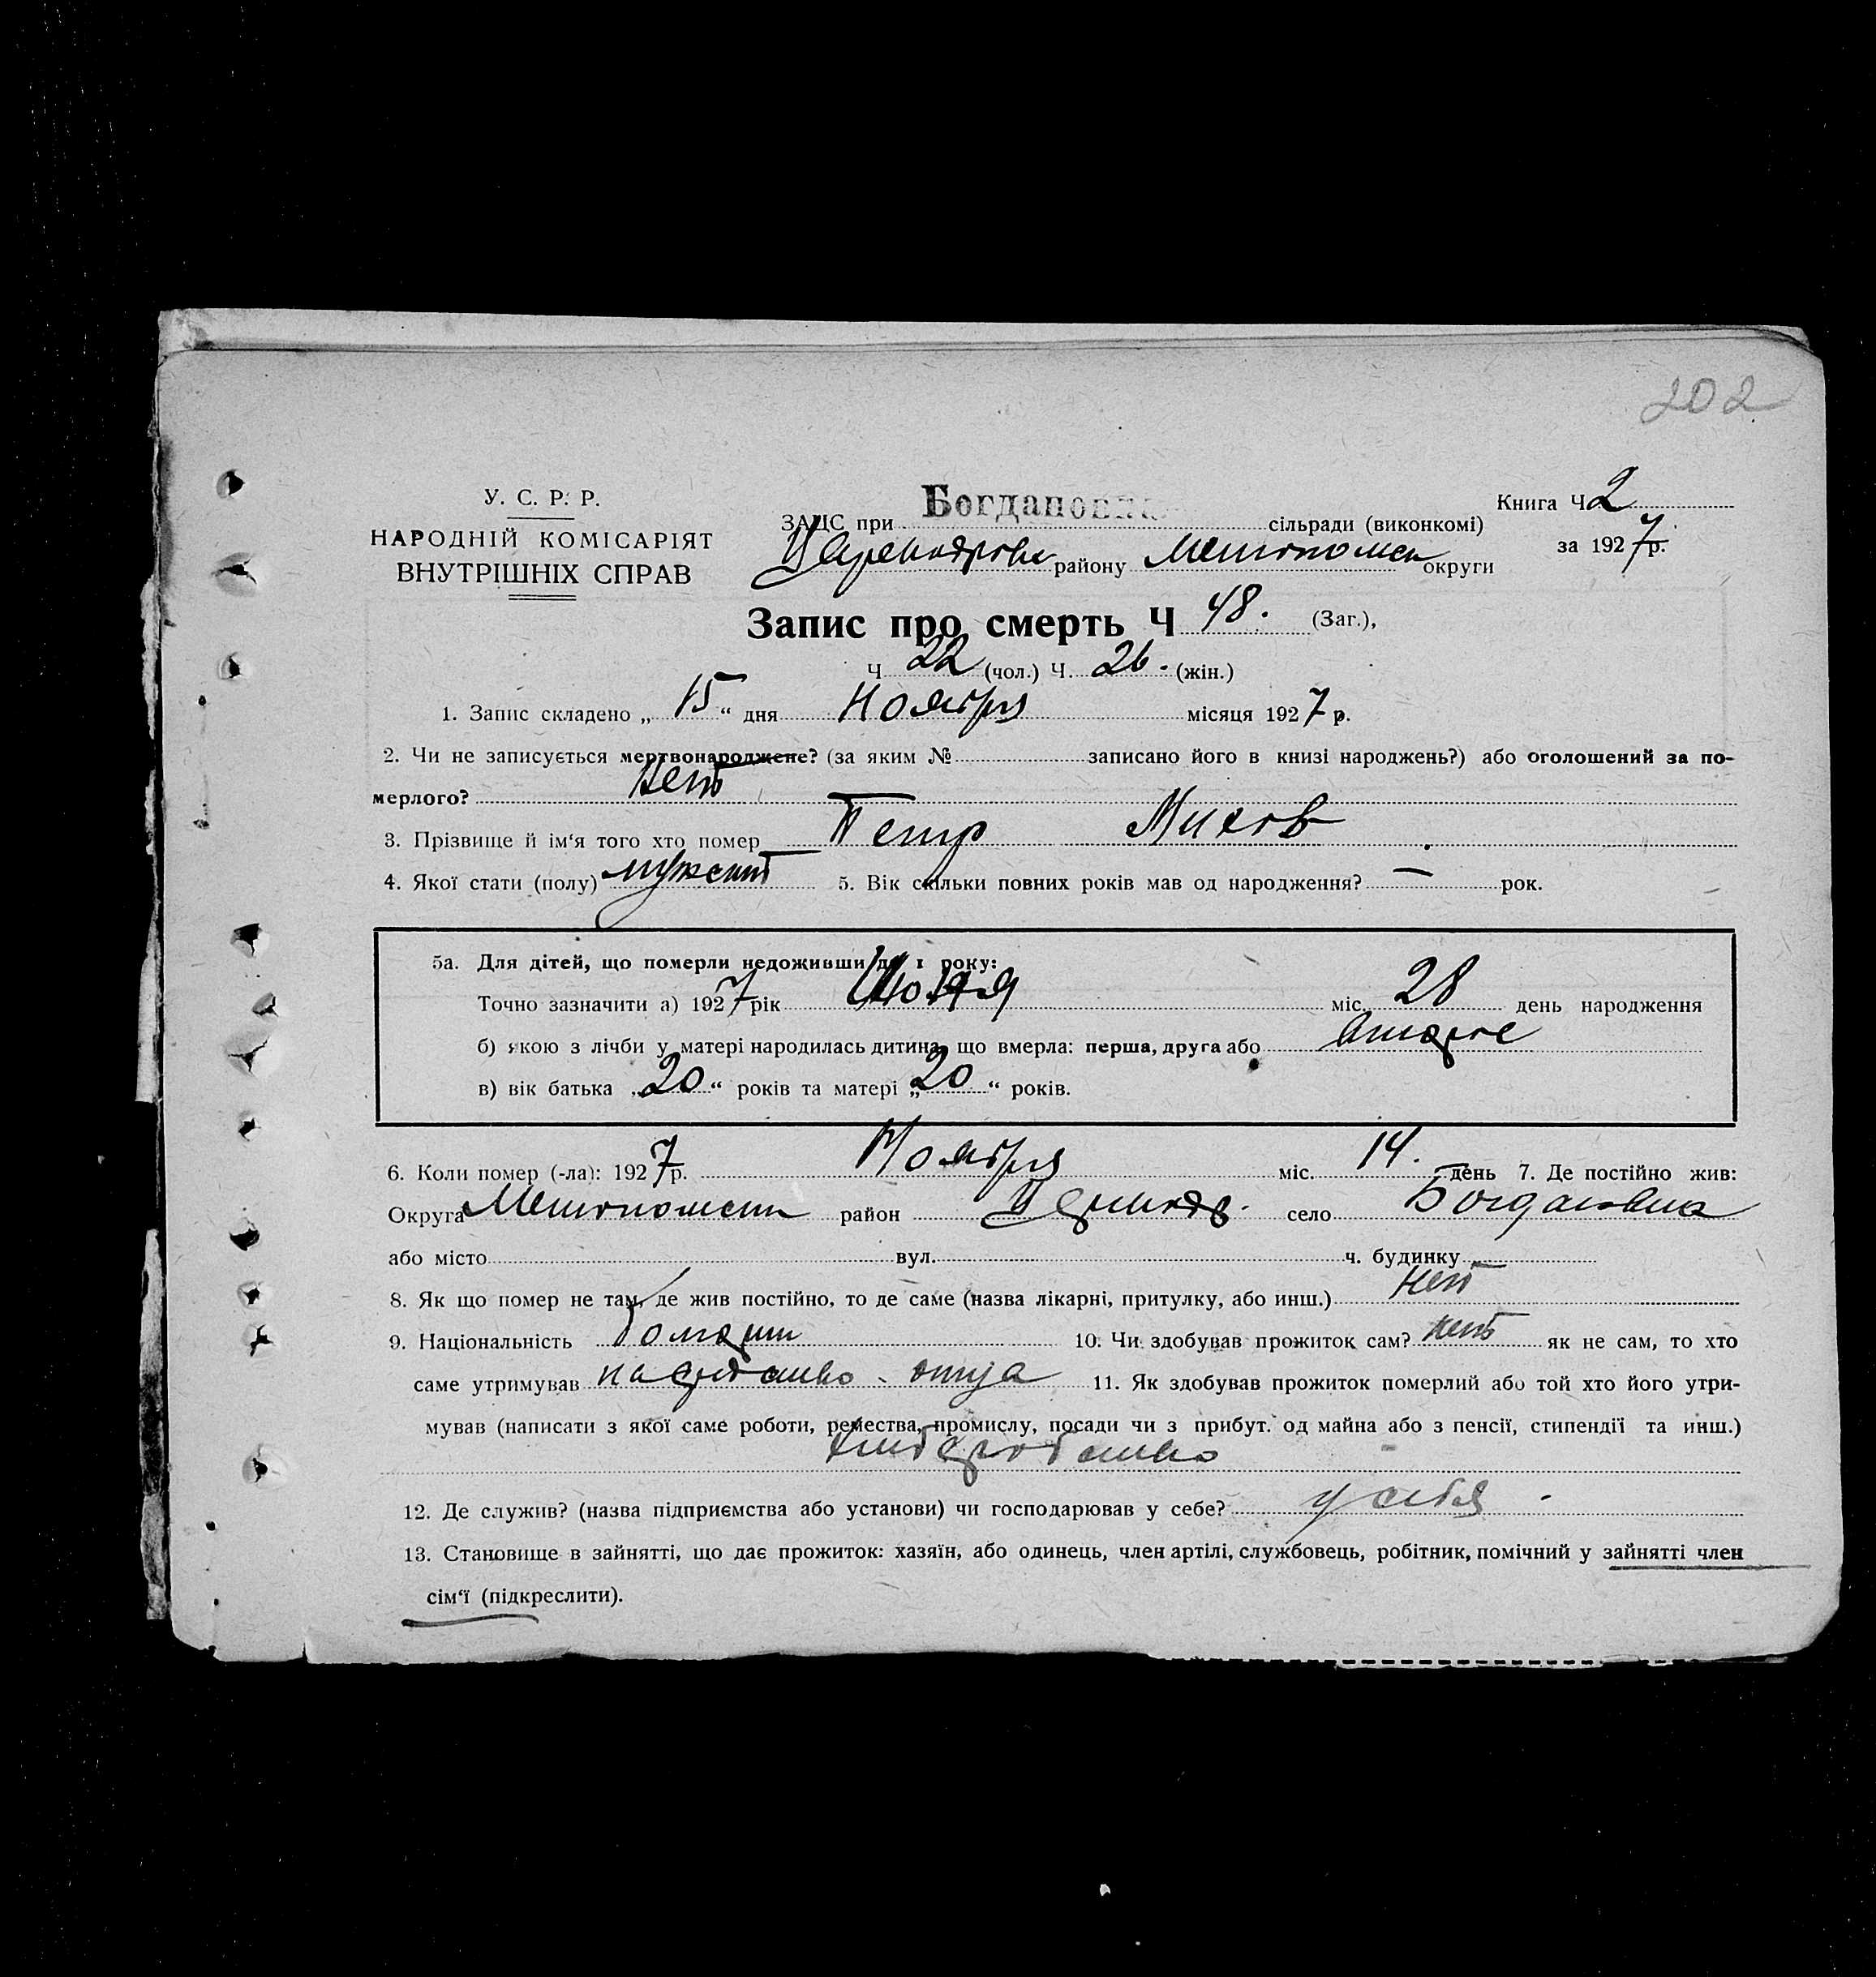 202
У. С. Р. Р.
НАРОДНІЙ КОМІСАРІЯТ
ВНУТРІШНІХ СПРАВ
Богдановка
ЗАЦС при сільради (виконкомі)
району Мелитопольск округи
Книга Ч. 2
за 1927 р.
Запис про смерть Ч 48. (Заг.),
Ч 22 (чол.) Ч. 26. (жін.)
1. Запис складено „ 15 “ дня ноября місяця 1927 р.
2. Чи не записується мертвонароджене? (за яким № записано його в книзі народжень?) або оголошений за по-
мерлого? нет
3. Прізвище й ім‘я того хто помер Петр
4. Якої стати (полу) мужской 5. Вік скільки повних років мав од народження? — рок.
5а. Для дітей, що померли недоживши до 1 року:
Точно зазначити а) 1927 рік міс. 28 день народження
б) якою з лічби у матері народилась дитина, що вмерла: перша, друга або вторге
в) вік батька „20“ років та матері „20“ років.
6. Коли помер (-ла): 1927 р. Ноября міс. 14. день 7. Де постійно жив:
Округа Мелитопольск район село Богдановка
або місто вул. ч. будинку
8. Як що помер не там, де жив постійно, то де саме (назва лікарні, притулку, або инш.) нет
9. Національність болгарин 10. Чи здобував прожиток сам? нет як не сам, то хто
саме утримував на средства отца 11. Як здобував прожиток померлий або той хто його утри-
мував (написати з якої саме роботи, ремества, промислу, посади чи з прибут. од майна або з пенсії, стипендії та инш.)
хлебробство
12. Де служив? (назва підприємства або установи) чи господарював у себе? у себя .
13. Становище в зайнятті, що дає прожиток: хазяїн, або одинець, член артілі, службовець, робітник, помічний у зайнятті член
сім‘ї (підкреслити).